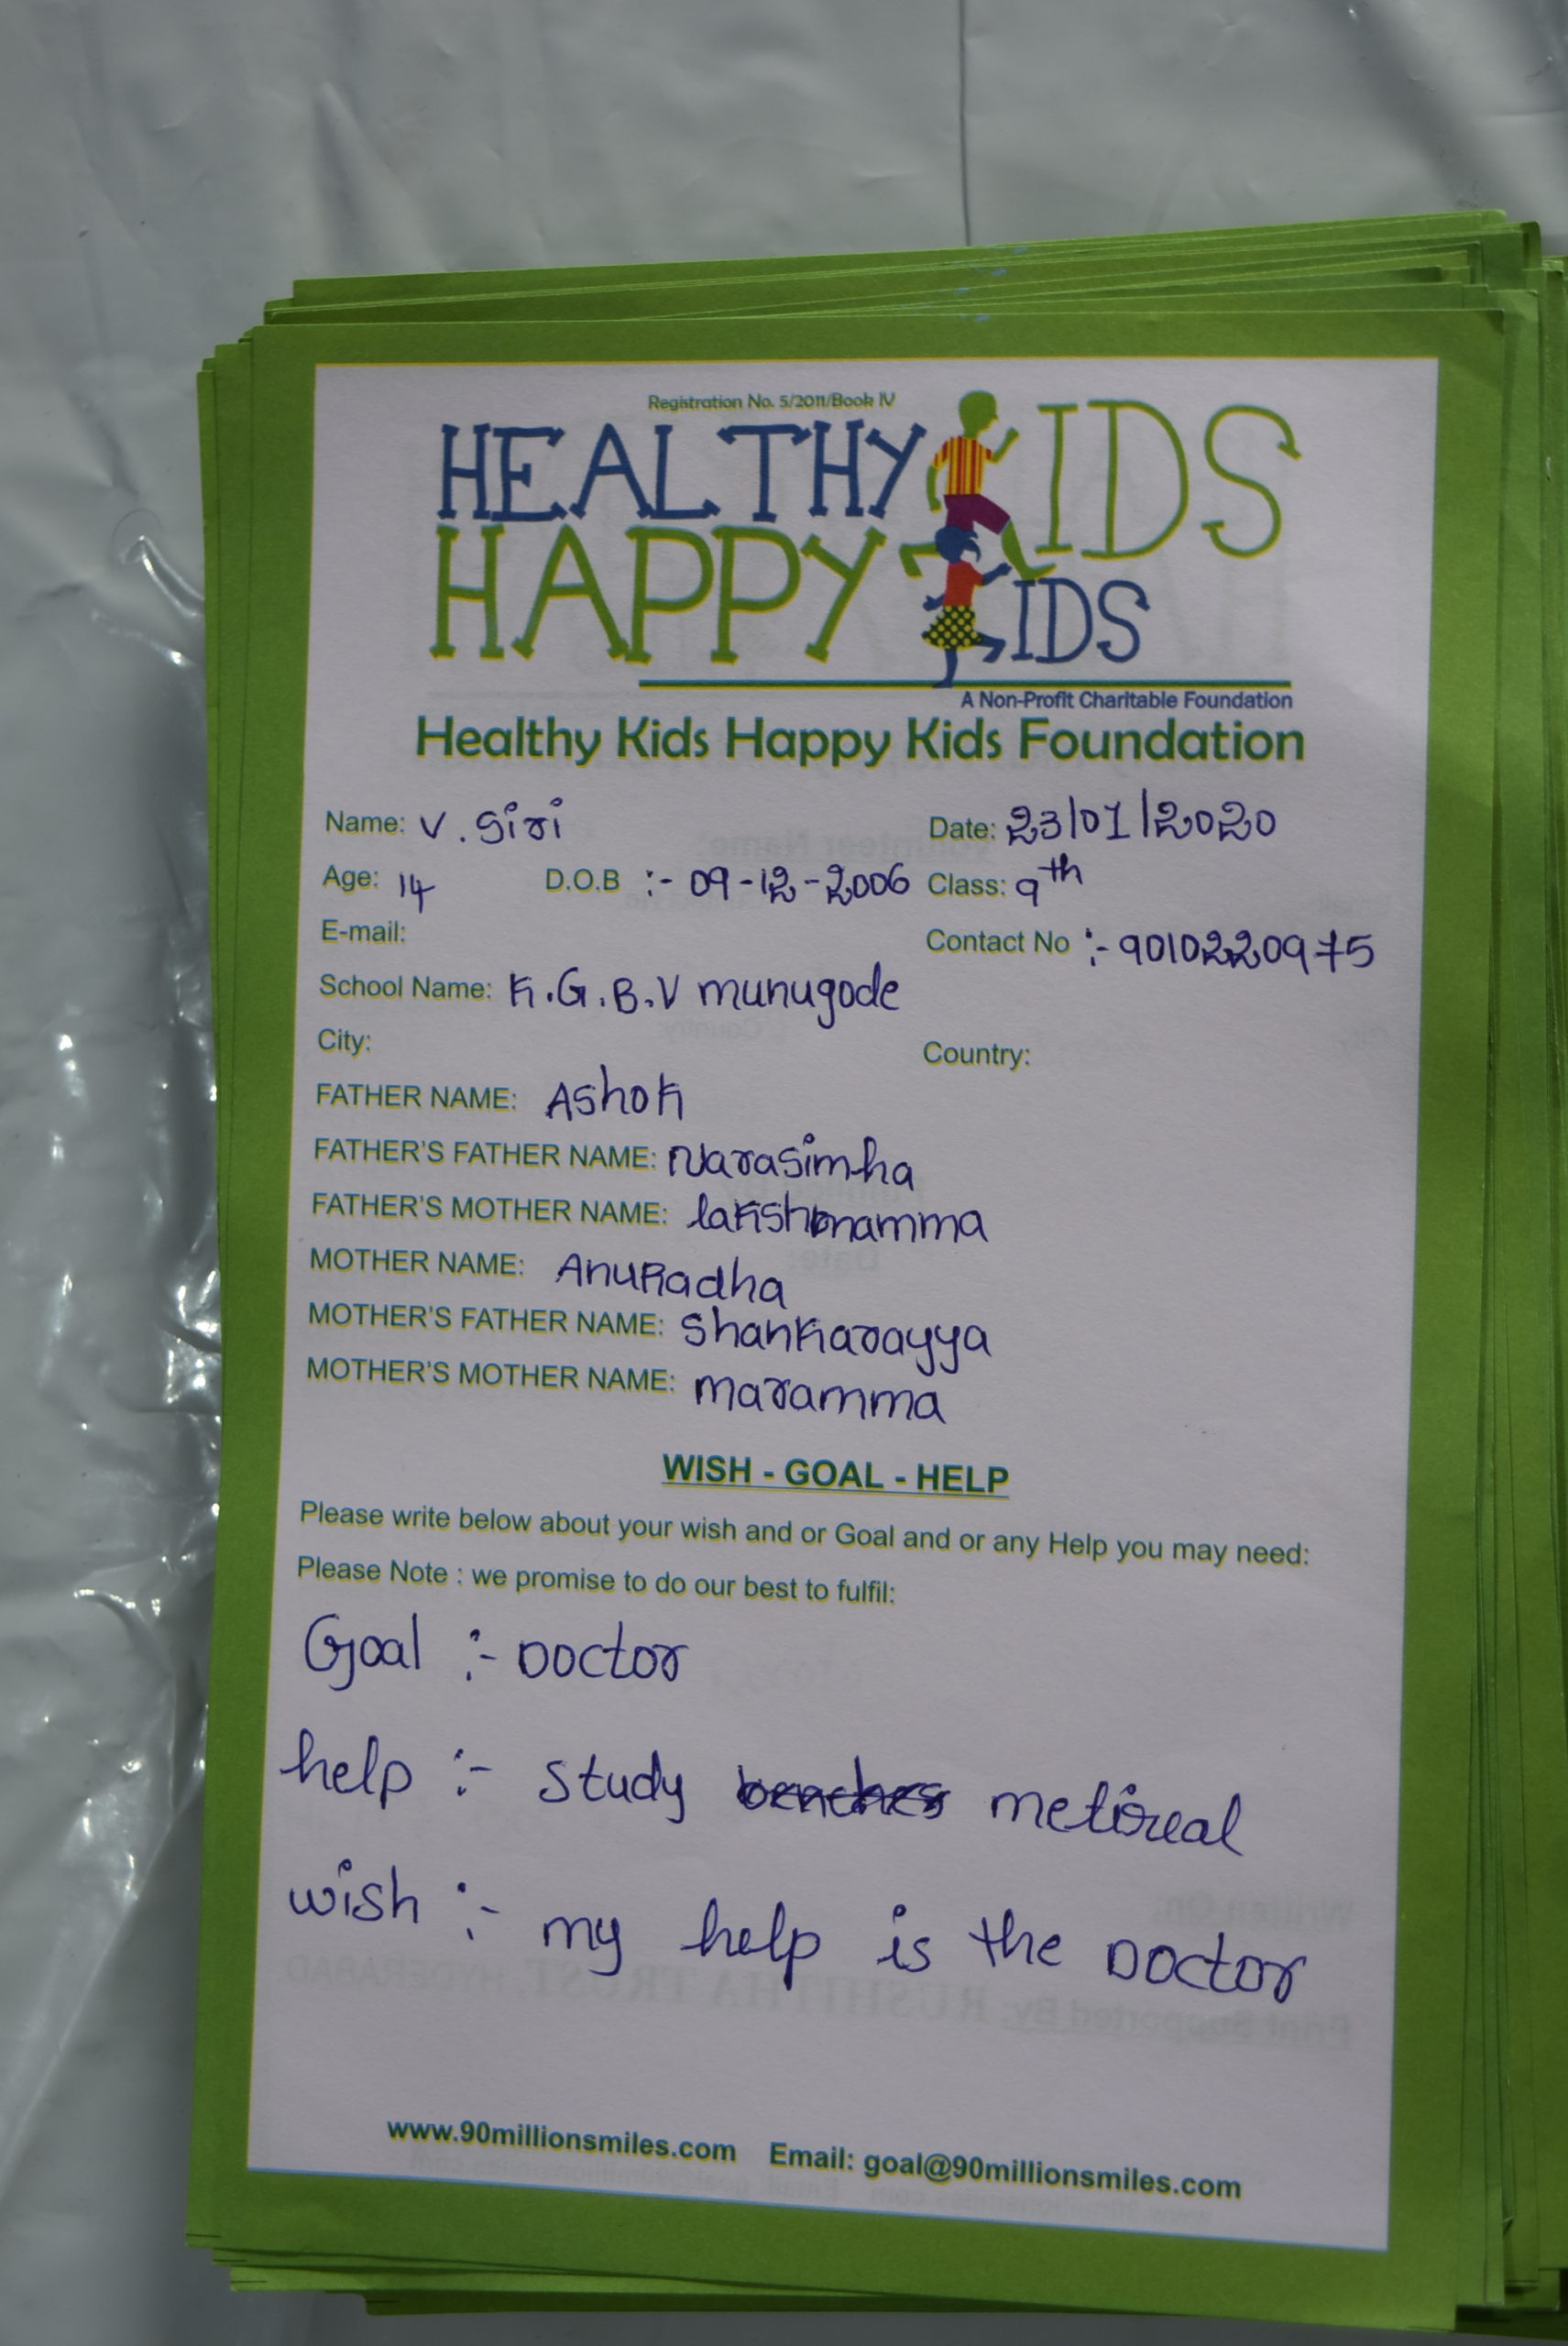 Registration No. 5/2011/Book IV
HEALTHY KIDS
HAPPY KIDS
A Non-Profit Charitable Foundation
Healthy Kids Happy Kids Foundation
Name: V. Siri Date: 23/01/2020
Age: 14 D.O.B :- 09-12-2006 Class: 9th
E-mail: Contact No :- 9010220975
School Name: K.G.B.V munugode
City: Country:
FATHER NAME: Ashok
FATHER'S FATHER NAME: Narasimha
FATHER'S MOTHER NAME: lakshmamma
MOTHER NAME: AnuRadha
MOTHER'S FATHER NAME: Shankarayya
MOTHER'S MOTHER NAME: maramma
WISH - GOAL - HELP
Please write below about your wish and or Goal and or any Help you may need:
Please Note : we promise to do our best to fulfil:
Goal :- Doctor
help :- Study benches metireal
wish :- my help is the Doctor
www.90millionsmiles.com Email: goal@90millionsmiles.com